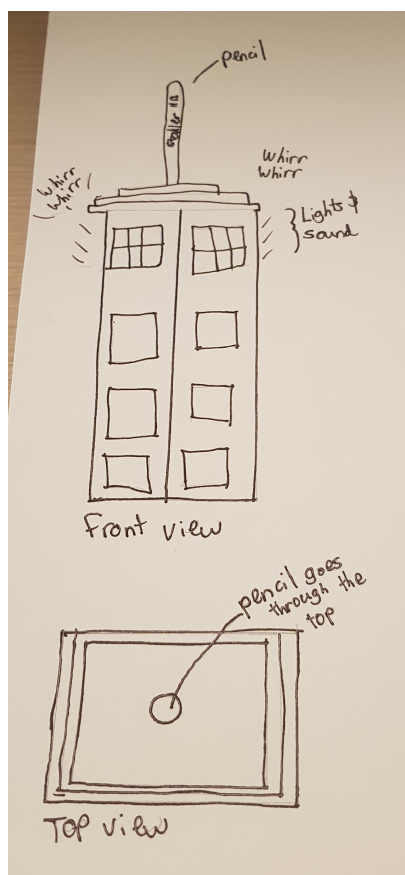 pencil
whirr
whirr
whirr
whirr
Lights &
sound
Front view
pencil goes
through the
top
Top view